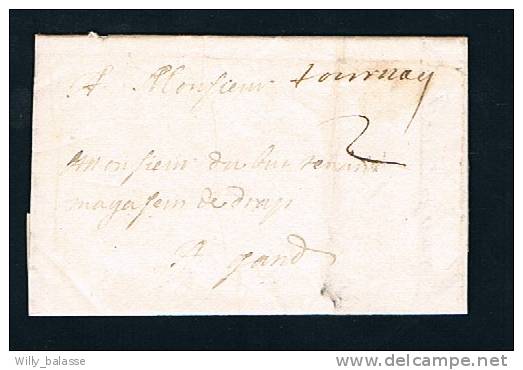 A Monsieur tournay
2
Monsieur du bus tenant
magasein de drap
A gand
Willy_balasse
delcampe.net